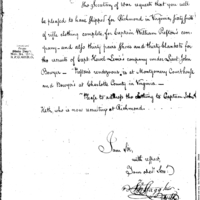 The Secretary of War requests that you will
be pleased to have shipped for Richmond in Virginia, forty suits
of rifle clothing complete for Captain William Preston's com-
pany – and also thirty pair Shoes and thirty blankets for
the recruits of Capt Howell Lewis's company under Lieut. John
Bowyer – Preston's rendezvous, is at Montgomery Courthouse
and Bowyer's at Charlotte County in Virginia –
Please to address the clothing to Captain John H
is now recruiting at Richmond.
I am Sir,
with respect,
Your obed Serv